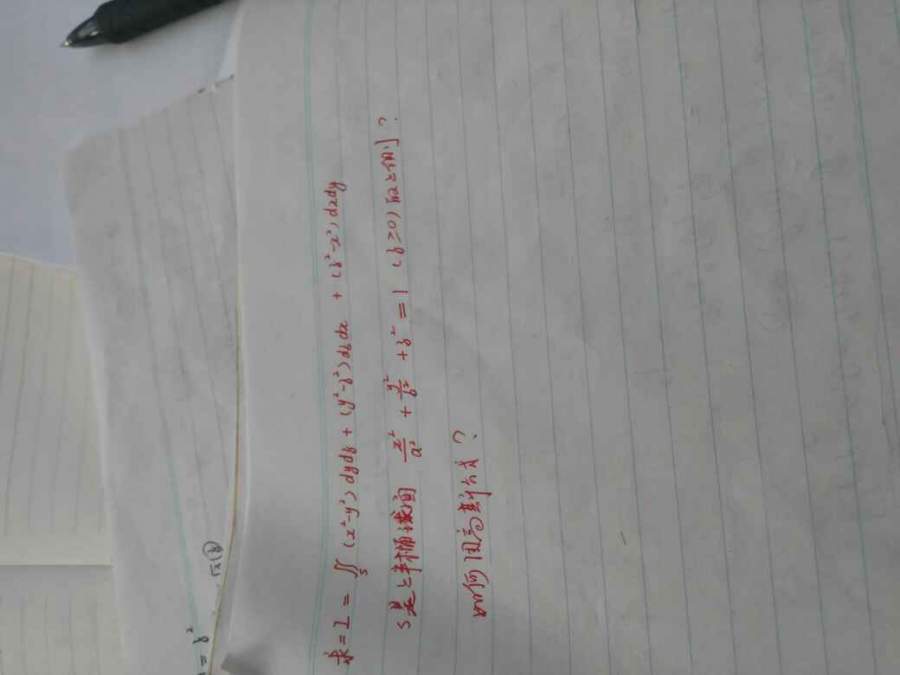 求=I = ∬_S (x²-y²)dydz + (y²-z²)dzdx + (z²-x²)dxdy
S是上半椭球面 x²/a² + y²/b² + z² = 1 (z≥0)取上侧?
如何用高斯公式?
= z²